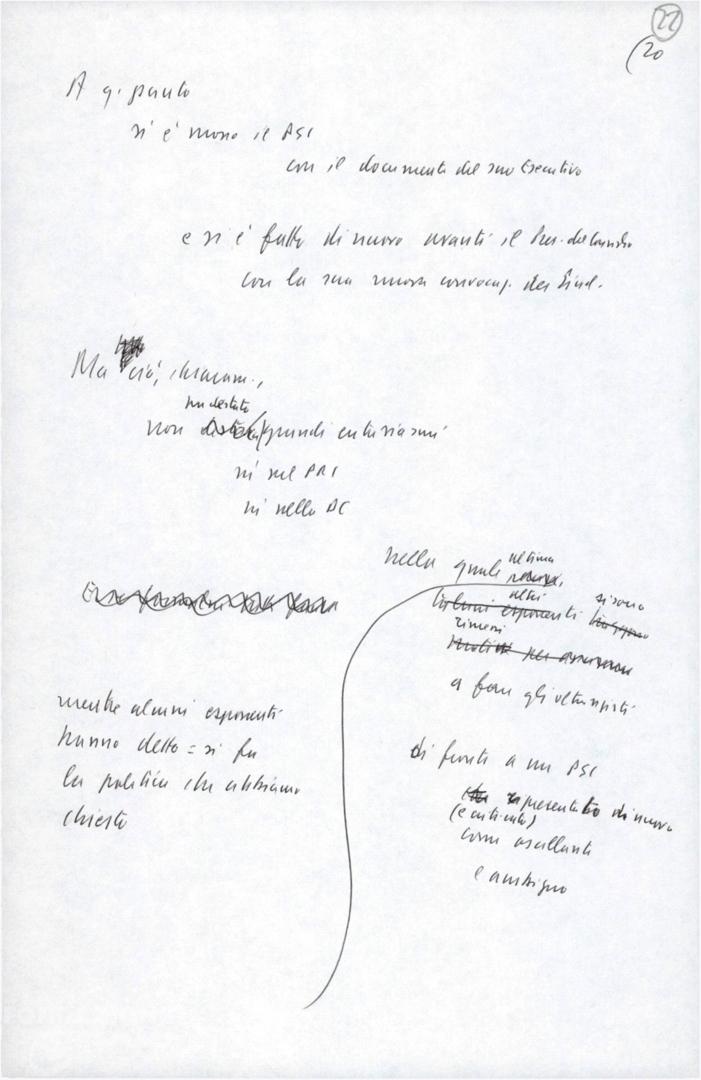 22
(20
A q. punto
si è mosso il PSI
con il documento del suo Esecutivo
e si è fatto di nuovo avanti il Pres. del Consiglio
con la sua nuova convocaz. dei Sind.
Ma ciò, chiaram.,
ha destato
non grandi entusiasmi
né nel PRI
né nella DC
nella quale ultima
altri
esponenti si sono
rimessi
a fare gli oltranzisti
mentre alcuni esponenti
hanno detto = si fa
la politica che abbiamo
chiesto
di fronte a un PSI
presentato di nuovo
(e criticato)
come oscillante
e ambiguo